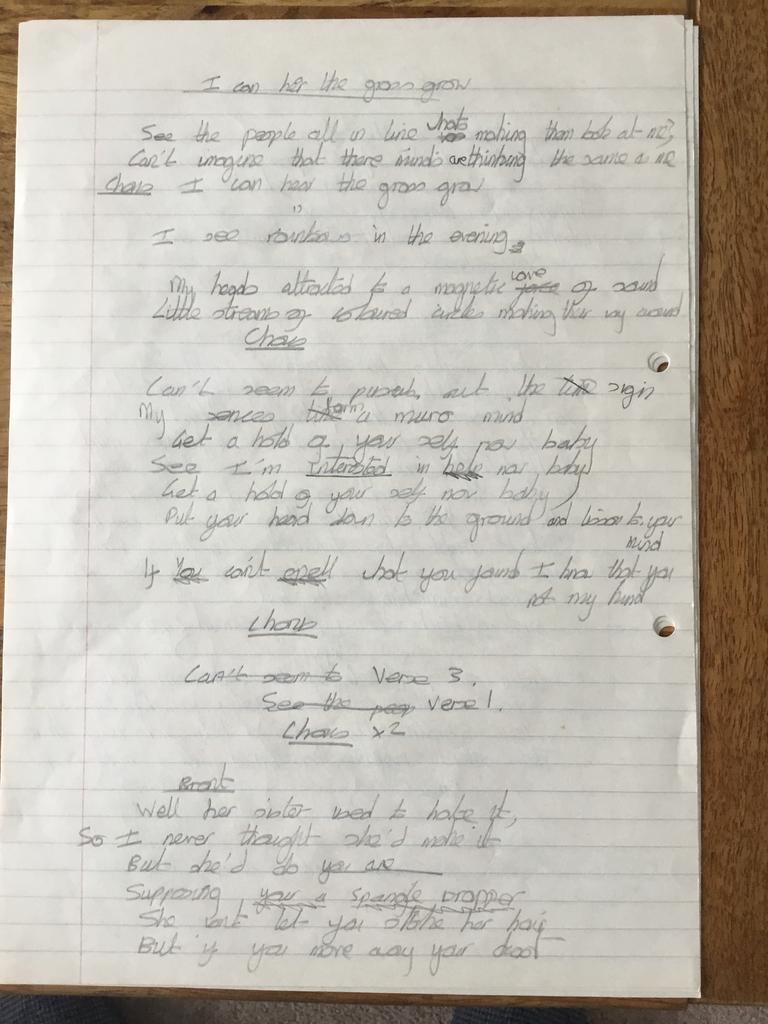 I can her the grass grow
See the people all in line whats making them look at me?
Can't imagine that there minds are thinking the same as me
Chorus I can hear the grass grow
"
I see rainbows in the evening
My heads attracted to a magnetic love of sound
Little streams of coloured circles making their way around
Chorus
Can't seem to out the sign
My sences form a mind
Get a hold of your self now baby
See I'm Interested in help now baby
Get a hold of your self now baby
Put your head down to the ground and lisson to your
mind
If You can't what you found I know that you
not my hand
Chorus
Can't seem to Verse 3.
See the peop Verse 1.
Chorus x2
Well her sister used to hate it,
So I never thought she'd make it
But she'd do you are
Supposing your a spangle
She wont let you her hair
But if you move away your